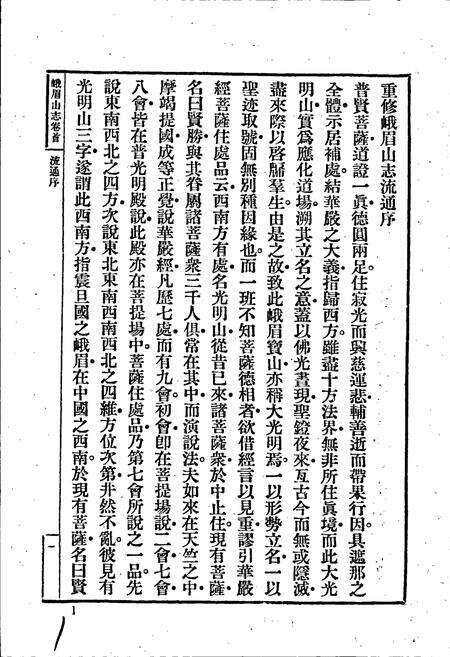 重修峨眉山志流通序
普賢菩薩道證一眞德圓兩足住寂光而興慈運悲輔善逝而帶果行因具遮那之
全體示居補處結華嚴之大義指歸西方雖盡十方法界無非所住眞境而此大光
明山實爲應化道場溯其立名之意蓋以佛光晝現聖鐙夜來亙古今而無或隱滅
盡來際以啓牖羣生由是之故致此峨眉寶山亦稱大光明焉一以形勢立名一以
聖迹取號固無別種因緣也而一班不知菩薩德相者欲借經言以見重謬引華嚴
經菩薩住處品云西南方有處名光明山從昔已來諸菩薩衆於中止住現有菩薩
名曰賢勝與其眷屬諸菩薩衆三千人俱常在其中而演說法夫如來在天竺之中
摩竭提國成等正覺說華嚴經凡歷七處而有九會初會卽在菩提場說二會七會
八會皆在普光明殿說此殿亦在菩提場中菩薩住處品乃第七會所說之一品先
說東南西北之四方次說東北東南西南西北之四維方位次第井然不亂彼見有
光明山三字遂謂此西南方指震旦國之峨眉在中國之西南於現有菩薩名曰賢
峨眉山志卷首
流通序
一
1